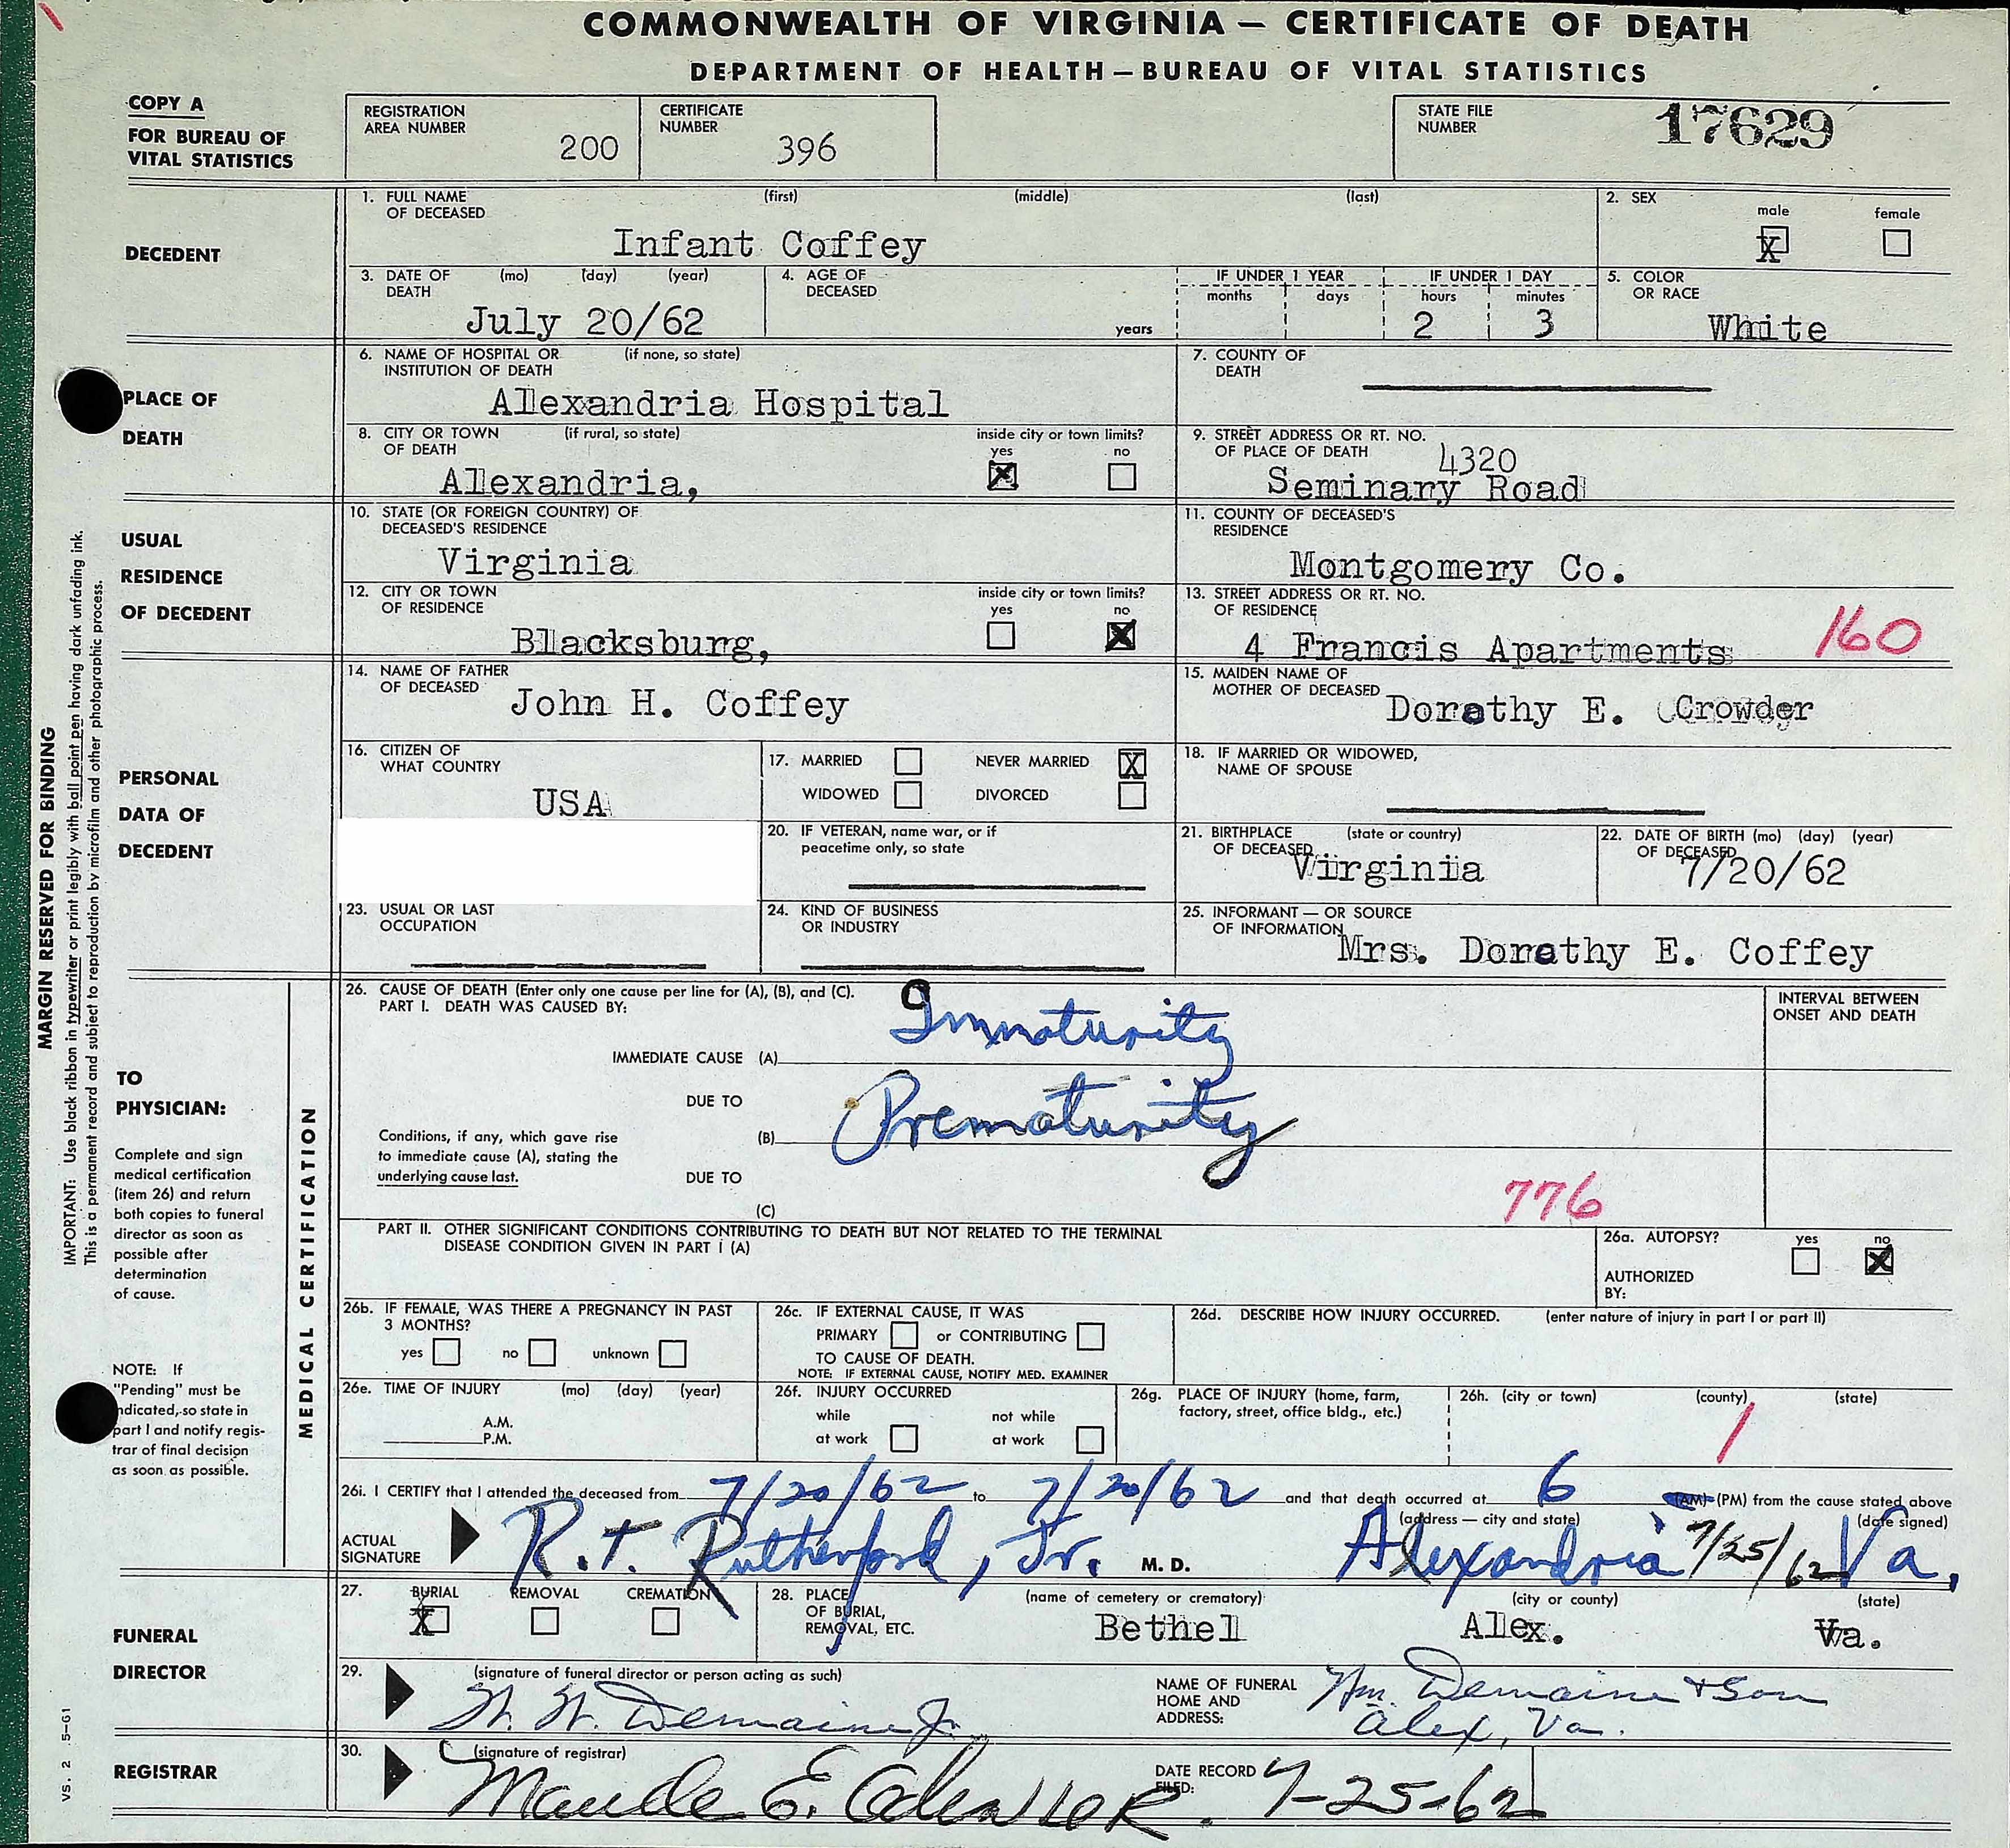 COMMONWEALTH OF VIRGINIA — CERTIFICATE OF DEATH
DEPARTMENT OF HEALTH — BUREAU OF VITAL STATISTICS
COPY A
FOR BUREAU OF
VITAL STATISTICS
REGISTRATION
AREA NUMBER
200
CERTIFICATE
NUMBER
396
STATE FILE
NUMBER
17629
DECEDENT
1. FULL NAME (first) (middle) (last)
OF DECEASED
Infant Coffey
2. SEX
male female
X
3. DATE OF (mo) (day) (year)
DEATH
July 20/62
4. AGE OF
DECEASED
years
IF UNDER 1 YEAR
months days
IF UNDER 1 DAY
hours minutes
2 3
5. COLOR
OR RACE
White
PLACE OF
DEATH
6. NAME OF HOSPITAL OR (if none, so state)
INSTITUTION OF DEATH
Alexandria Hospital
7. COUNTY OF
DEATH
8. CITY OR TOWN (if rural, so state)
OF DEATH
Alexandria,
inside city or town limits?
yes no
X
9. STREET ADDRESS OR RT. NO.
OF PLACE OF DEATH
4320
Seminary Road
USUAL
RESIDENCE
OF DECEDENT
10. STATE (OR FOREIGN COUNTRY) OF
DECEASED'S RESIDENCE
Virginia
11. COUNTY OF DECEASED'S
RESIDENCE
Montgomery Co.
12. CITY OR TOWN
OF RESIDENCE
Blacksburg,
inside city or town limits?
yes no
X
13. STREET ADDRESS OR RT. NO.
OF RESIDENCE
4 Francis Apartments
160
PERSONAL
DATA OF
DECEDENT
14. NAME OF FATHER
OF DECEASED
John H. Coffey
15. MAIDEN NAME OF
MOTHER OF DECEASED
Dorothy E. Crowder
16. CITIZEN OF
WHAT COUNTRY
USA
17. MARRIED NEVER MARRIED X
WIDOWED DIVORCED
18. IF MARRIED OR WIDOWED,
NAME OF SPOUSE
20. IF VETERAN, name war, or if
peacetime only, so state
21. BIRTHPLACE (state or country)
OF DECEASED
Virginia
22. DATE OF BIRTH (mo) (day) (year)
OF DECEASED
7/20/62
23. USUAL OR LAST
OCCUPATION
24. KIND OF BUSINESS
OR INDUSTRY
25. INFORMANT — OR SOURCE
OF INFORMATION
Mrs. Dorothy E. Coffey
MARGIN RESERVED FOR BINDING
IMPORTANT: Use black ribbon in typewriter or print legibly with ball point pen having dark unfading ink.
This is a permanent record and subject to reproduction by microfilm and other photographic process.
TO
PHYSICIAN:
Complete and sign
medical certification
(item 26) and return
both copies to funeral
director as soon as
possible after
determination
of cause.
NOTE: If
"Pending" must be
indicated, so state in
part I and notify regis-
trar of final decision
as soon as possible.
MEDICAL CERTIFICATION
26. CAUSE OF DEATH (Enter only one cause per line for (A), (B), and (C).
PART I. DEATH WAS CAUSED BY:
INTERVAL BETWEEN
ONSET AND DEATH
IMMEDIATE CAUSE (A) Immaturity
DUE TO
Conditions, if any, which gave rise
to immediate cause (A), stating the
underlying cause last.
(B) Prematurity
DUE TO
(C)
776
PART II. OTHER SIGNIFICANT CONDITIONS CONTRIBUTING TO DEATH BUT NOT RELATED TO THE TERMINAL
DISEASE CONDITION GIVEN IN PART I (A)
26a. AUTOPSY? yes no
X
AUTHORIZED
BY:
26b. IF FEMALE, WAS THERE A PREGNANCY IN PAST
3 MONTHS?
yes no unknown
26c. IF EXTERNAL CAUSE, IT WAS
PRIMARY or CONTRIBUTING
TO CAUSE OF DEATH.
NOTE: IF EXTERNAL CAUSE, NOTIFY MED. EXAMINER
26d. DESCRIBE HOW INJURY OCCURRED. (enter nature of injury in part I or part II)
26e. TIME OF INJURY (mo) (day) (year)
A.M.
P.M.
26f. INJURY OCCURRED
while not while
at work at work
26g. PLACE OF INJURY (home, farm,
factory, street, office bldg., etc.)
26h. (city or town) (county) (state)
1
26i. I CERTIFY that I attended the deceased from 7/20/62 to 7/20/62 and that death occurred at 6 (AM) (PM) from the cause stated above
(address — city and state) (date signed)
ACTUAL
SIGNATURE
R.T. Rutherford, Jr. M. D. Alexandria 7/25/62 Va.
FUNERAL
DIRECTOR
27. BURIAL REMOVAL CREMATION
X
28. PLACE
OF BURIAL,
REMOVAL, ETC.
(name of cemetery or crematory) (city or county) (state)
Bethel Alex. Va.
29. (signature of funeral director or person acting as such)
W. W. Demaine Jr.
NAME OF FUNERAL
HOME AND
ADDRESS:
Wm. Demaine & Son
Alex, Va.
REGISTRAR
30. (signature of registrar)
Maude E.
DATE RECORD
FILED:
7-25-62
VS. 2 5-61